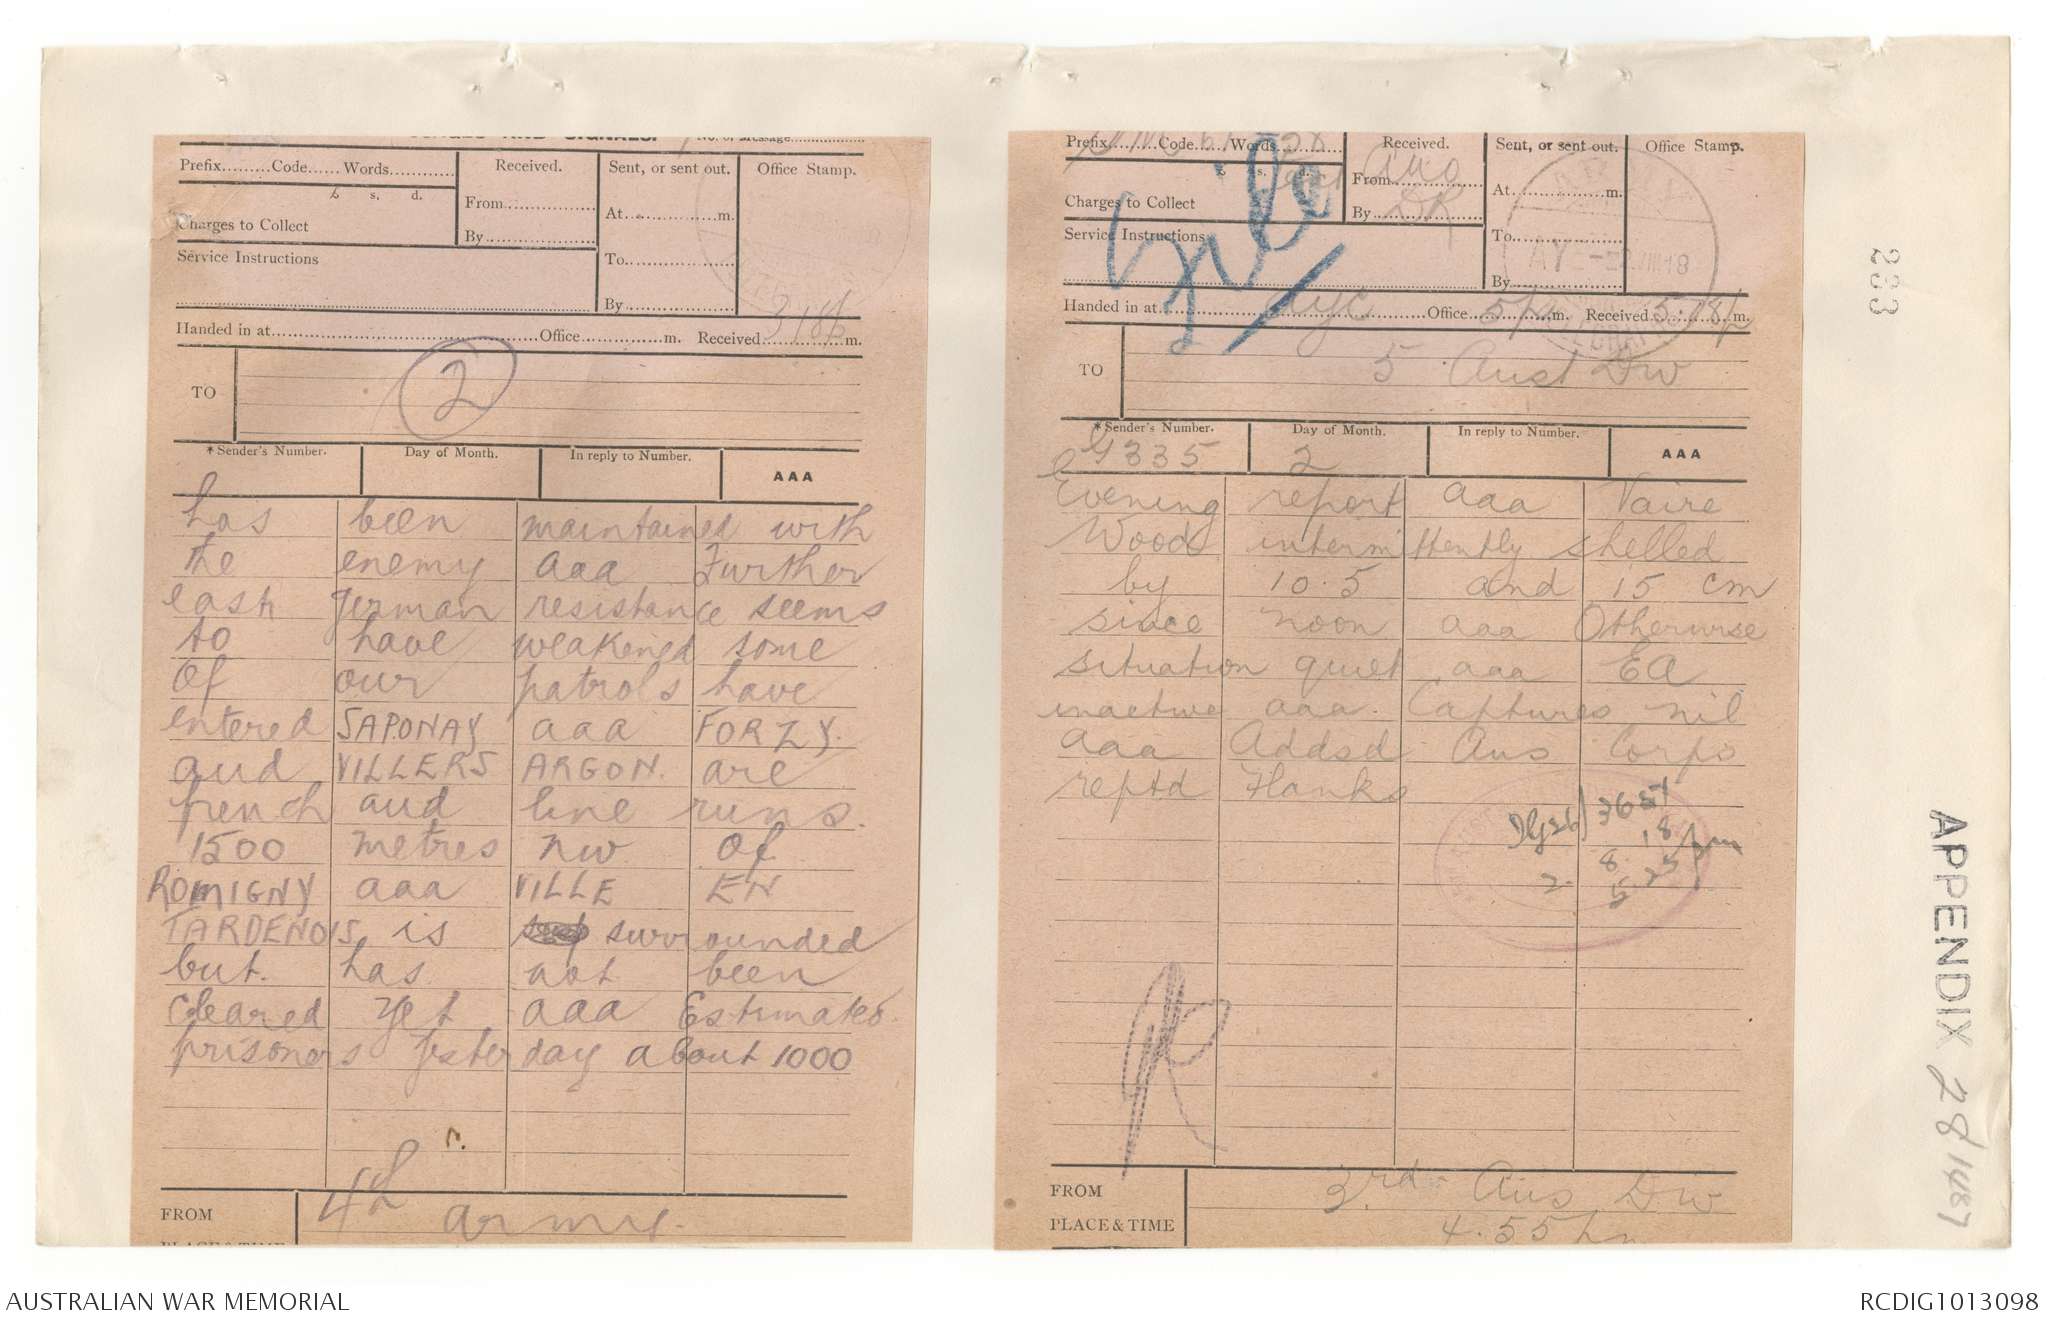 No. of Message
Prefix.........Code......Words............
Received.
Sent, or sent out.
Office Stamp.
£ s. d.
Charges to Collect
From
At..................m.
By
Service Instructions
To
By
Handed in at..........Office..............m. Received 318p m.
TO
2
*Sender's Number.
Day of Month.
In reply to Number.
AAA
has been maintained with
the enemy aaa Further
east german resistance seems
to have weakened some
of our patrols have
entered SAPONAY aaa FORZY.
and VILLERS ARGON. are
french and line runs.
1500 metres nw of
ROMIGNY aaa VILLE EN
TARDENOIS is surrounded
but. has not been
cleared yet aaa Estimated
prisoners yesterday about 1000
FROM
4th army.
PLACE & TIME
Prefix.........Code......Words
Received.
Sent, or sent out.
Office Stamp.
£ s. d.
Charges to Collect
From
By DR
At..................m.
Service Instructions
To
By
File
Handed in at ayc Office 5p m. Received 5.18p m.
TO
5 Aust Div
*Sender's Number.
Day of Month.
In reply to Number.
AAA
G335 2
Evening report aaa Vaire
Woods intermittently shelled
by 10.5 and 15 cm
since noon aaa Otherwise
situation quiet aaa EA
inactive aaa. Captures nil
aaa Addsd Aus Corps
reptd Flanks
2. 8. 18
5.25 pm
FROM
3rd Aus Div
PLACE & TIME
4.55 pm
233
APPENDIX 28/1487
AUSTRALIAN WAR MEMORIAL
RCDIG1013098